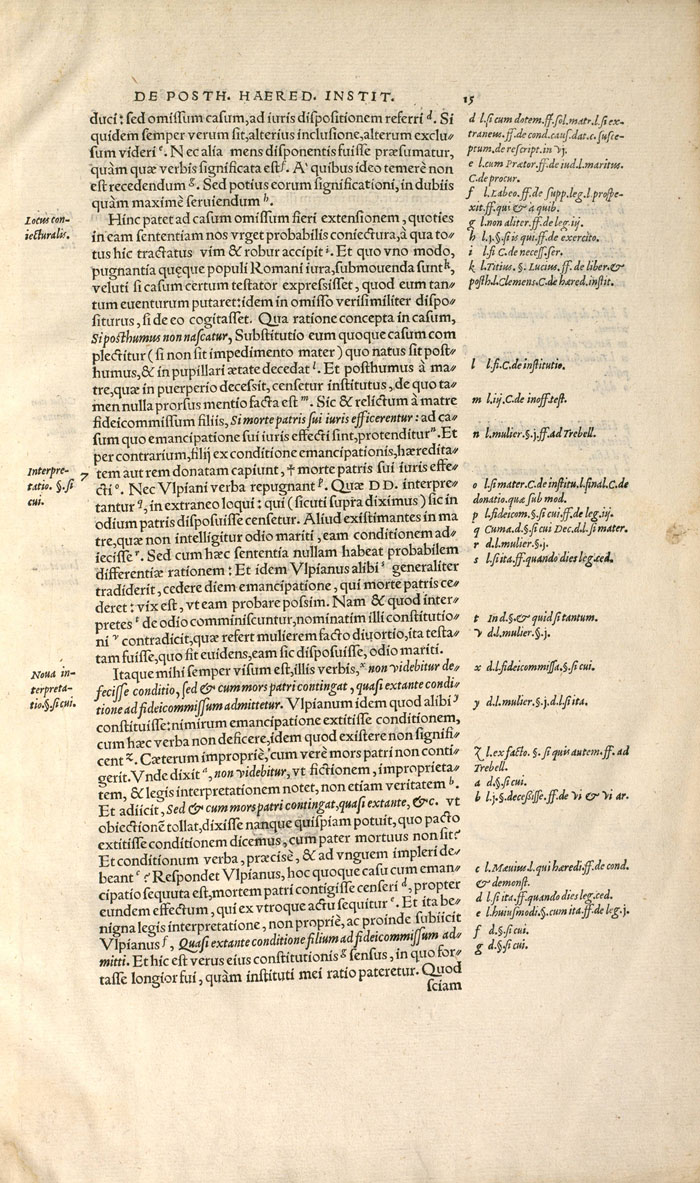 DE POSTH. HAERED. INSTIT. 15
duci: sed omissum casum, ad iuris dispositionem referri d. Si
quidem semper verum sit, alterius inclusione, alterum exclu-
sum videri e. Nec alia mens disponentis fuisse præsumatur,
quàm quæ verbis significata est f. A' quibus ideo temerè non
est recedendum g. Sed potius eorum significationi, in dubiis
quàm maximè seruiendum h.
Hinc patet ad casum omissum fieri extensionem, quoties
in eam sententiam nos vrget probabilis coniectura, à qua to-
tus hic tractatus vim & robur accipit i. Et quo vno modo,
pugnantia quęque populi Romani iura, submouenda sunt k,
veluti si casum certum testator expressisset, quod eum tan-
tum euenturum putaret: idem in omisso verisimiliter dispo-
siturus, si de eo cogitasset. Qua ratione concepta in casum,
Si posthumus non nascatur, Substitutio eum quoque casum com
plectitur (si non sit impedimento mater) quo natus sit post-
humus, & in pupillari ætate decedat l. Et posthumus à ma-
tre, quæ in puerperio decessit, censetur institutus, de quo ta-
men nulla prorsus mentio facta est m. Sic & relictum à matre
fideicommissum filiis, Si morte patris sui iuris efficerentur: ad ca-
sum quo emancipatione sui iuris effecti sint, protenditur n. Et
per contrarium, filij ex conditione emancipationis, hæredita-
7 tem aut rem donatam capiunt, † morte patris sui iuris effe-
cti o. Nec Vlpiani verba repugnant p. Quæ DD. interpre-
tantur q, in extraneo loqui: qui (sicuti suprà diximus) sic in
odium patris disposuisse censetur. Aliud existimantes in ma
tre, quæ non intelligitur odio mariti, eam conditionem ad-
iecisse r. Sed cum hæc sententia nullam habeat probabilem
differentiæ rationem: Et idem Vlpianus alibi s generaliter
tradiderit, cedere diem emancipatione, qui morte patris ce-
deret: vix est, vt eam probare possim. Nam & quod inter-
pretes t de odio comminiscuntur, nominatim illi constitutio-
ni v contradicit, quæ refert mulierem facto diuortio, ita testa-
tam fuisse, quo fit euidens, eam sic disposuisse, odio mariti.
Itaque mihi semper visum est, illis verbis, x non videbitur de-
fecisse conditio, sed & cum mors patri contingat, quasi extante condi-
tione ad fideicommissum admittetur. Vlpianum idem quod alibi y
constituisse: nimirum emancipatione extitisse conditionem,
cum hæc verba non deficere, idem quod existere non signifi-
cent z. Cæterum impropriè, cum verè mors patri non conti-
gerit. Vnde dixit a, non videbitur, vt fictionem, improprieta-
tem, & legis interpretationem notet, non etiam veritatem b.
Et adiicit, Sed & cum mors patri contingat, quasi extante, &c. vt
obiectionē tollat, dixisse nanque quispiam potuit, quo pacto
extitisse conditionem dicemus, cum pater mortuus non sit?
Et conditionum verba, præcisè, & ad vnguem impleri de-
beant c? Respondet Vlpianus, hoc quoque casu cum eman-
cipatio sequuta est, mortem patri contigisse censeri d, propter
eundem effectum, qui ex vtroque actu sequitur e. Et ita be-
nigna legis interpretatione, non propriè, ac proinde subiicit
Vlpianus f, Quasi extante conditione filium ad fideicommissum ad-
mitti. Et hic est verus eius constitutionis g sensus, in quo for-
tasse longior fui, quàm instituti mei ratio pateretur. Quod
sciam
Locus con-
iecturalis.
Interpre-
tatio. §. si
cui.
Noua in-
terpreta-
tio. §. si cui.
d l. si cum dotem. ff. sol. matr. l. si ex-
traneus. ff. de cond. caus. dat. c. susce-
ptum. de rescript. in vj.
e l. cum Prætor. ff. de iud. l. maritus.
C. de procur.
f l. Labeo. ff. de supp. leg. l. prospe-
xit. ff. qui & à quib.
g l. non aliter. ff. de leg. iij.
h l. j. §. si is qui. ff. de exercito.
i l. fi C. de necess. ser.
k l. Titius. §. Lucius. ff. de liber. &
posth. l. Clemens. C. de hæred. instit.
l l. fi. C. de institutio.
m l. iij. C. de inoff. test.
n l. mulier. §. j. ff. ad Trebell.
o l. si mater. C. de institu. l. final. C. de
donatio. quæ sub mod.
p l. fideicom. §. si cui. ff. de leg. iij.
q Cuma. d. §. si cui Dec. d. l. si mater.
r d. l. mulier. §. j.
s l. si ita. ff. quando dies leg. ced.
t In d. §. & quid si tantum.
v d. l. mulier. §. j.
x d. l. fideicommissa. §. si cui.
y d. l. mulier. §. j. d. l. si ita.
z l. ex facto. §. si quis autem. ff. ad
Trebell.
a d. §. si cui.
b l. j. §. decessisse. ff. de vi & vi ar.
c l. Mæuius d. qui hæredi. ff. de cond.
& demonst.
d l. si ita. ff. quando dies leg. ced.
e l. huiusmodi. §. cum ita. ff. de leg. j.
f d. §. si cui.
g d. §. si cui.